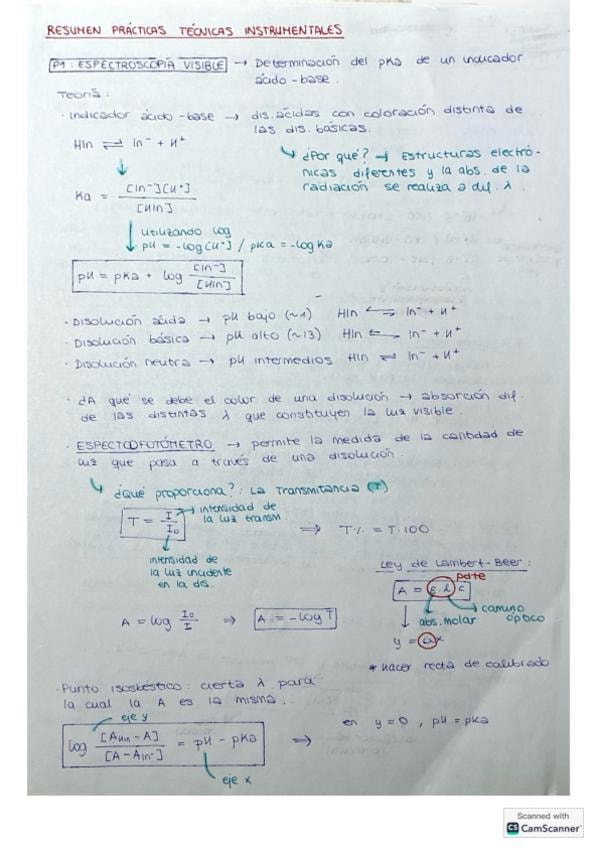 RESUMEN PRÁCTICAS TÉCNICAS INSTRUMENTALES
P1: ESPECTROSCOPÍA VISIBLE → Determinación del pKa de un indicador
ácido-base.
Teoría:
· Indicador ácido-base → dis. ácidas con coloración distinta de
las dis. básicas.
HIn ⇌ In⁻ + H⁺
↳ ¿Por qué? → Estructuras electró-
nicas diferentes y la abs. de la
radiación se realiza a dif. λ.
Ka = [In⁻][H⁺] / [HIn]
↓ utilizando log
pH = -log[H⁺] / pKa = -log Ka
pH = pKa + log [In⁻] / [HIn]
· Disolución ácida → pH bajo (~1) HIn ⇌ In⁻ + H⁺
· Disolución básica → pH alto (~13) HIn ⇌ In⁻ + H⁺
· Disolución neutra → pH intermedios HIn ⇌ In⁻ + H⁺
· ¿A qué se debe el color de una disolución → absorción dif.
de las distintas λ que constituyen la luz visible.
· ESPECTOFOTÓMETRO → permite la medida de la cantidad de
luz que pasa a través de una disolución.
↳ ¿Qué proporciona?: La Transmitancia (T)
T = I / I₀ → intensidad de
la luz transm.
⇒ T% = T·100
intensidad de
la luz incidente
en la dis.
Ley de Lambert-Beer:
pdte
A = ε.l c
camino
óptico
abs. molar
y = ax
* Hacer recta de calibrado
A = log I₀ / I ⇒ A = -log T
· Punto isosbéstico: cierta λ para
la cual la A es la misma.
eje y
log [A_HIn - A] / [A - A_In⁻] = pH - pKa ⇒ en y = 0, pH = pKa
eje x
Scanned with
CS CamScanner